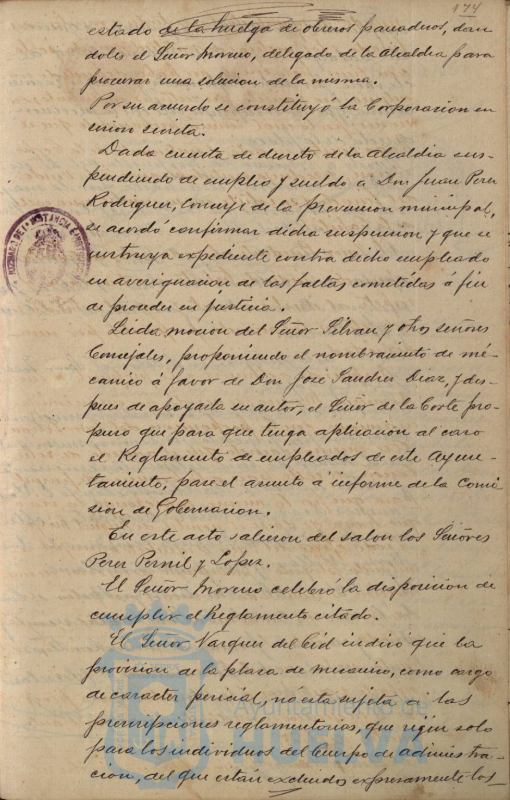 174
estado de la huelga de obreros panaderos, dan
doles el Señor Moreno, delegado de la Alcaldia para
procurar una solucion de la misma.
Por su acuerdo se constituyó la Corporacion en
sesion secreta.
Dada cuenta de decreto de la Alcaldia sus-
pendiendo de empleo y sueldo á Don Juan Perez
Rodriguez, Conserje de la prevencion municipal,
se acordó confirmar dicha suspension y que se
instruya expediente contra dicho empleado
en averiguacion de las faltas cometidas á fin
de proceder en justicia.
Leida mocion del Señor Silvan y otros señores
Concejales, proponiendo el nombramiento de me-
canico á favor de Don José Sanchez Diaz, y des-
pues de apoyarla su autor, el Señor de la Corte pro-
puso que para que tenga aplicacion al caso
el Reglamento de empleados de este Ayun-
tamiento, pase el asunto á informe de la Comi
sion de Gobernacion.
En este acto salieron del salon los Señores
Perez Pernil y Lopez.
El Señor Moreno celebró la disposicion de
cumplir el Reglamento citado.
El Señor Vazquez del Cid indicó que la
provision de la plaza de mecanico, como cargo
de caracter pericial, nó está sujeta á las
prescripciones reglamentarias, que rigen solo
para los individuos del Cuerpo de administra-
cion, del que están excluidos expresamente los
Ayuntamiento de
HUELVA